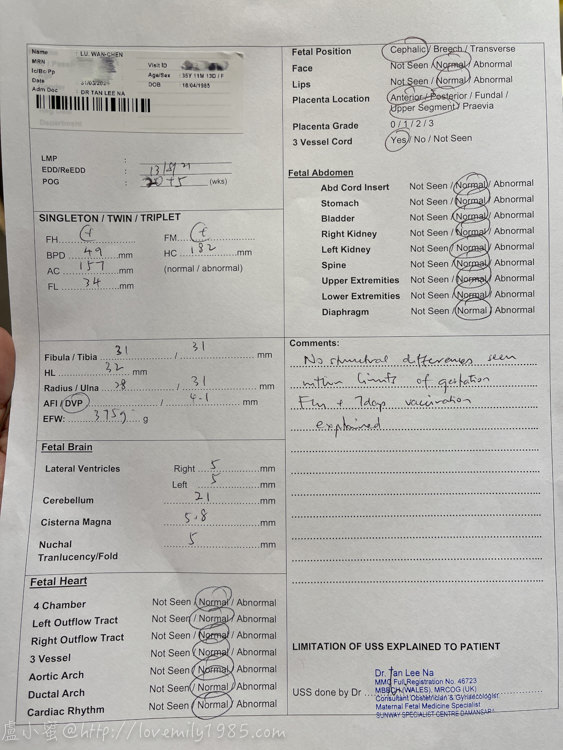 Name : LU, WAN-CHEN
MRN
Ic/Bc/Pp
Date : 31/03/2021
Adm Doc : DR TAN LEE NA
Visit ID
Age/Sex : 35Y 11M 13D / F
DOB : 18/04/1985
Department
LMP :
EDD/ReEDD :
POG : 20+5 (wks)
SINGLETON / TWIN / TRIPLET
FH + FM +
BPD 49 mm HC 182 mm
AC 157 mm (normal / abnormal)
FL 34 mm
Fibula / Tibia 31 / 31 mm
HL 32 mm
Radius / Ulna 28 / 31 mm
AFI / DVP / 4.1
EFW: 375g g
Fetal Brain
Lateral Ventricles Right 5 mm
Left 5 mm
Cerebellum 21 mm
Cisterna Magna 5.8 mm
Nuchal 5 mm
Tranlucency/Fold
Fetal Heart
4 Chamber Not Seen / Normal / Abnormal
Left Outflow Tract Not Seen / Normal / Abnormal
Right Outflow Tract Not Seen / Normal / Abnormal
3 Vessel Not Seen / Normal / Abnormal
Aortic Arch Not Seen / Normal / Abnormal
Ductal Arch Not Seen / Normal / Abnormal
Cardiac Rhythm Not Seen / Normal / Abnormal
Fetal Position Cephalic / Breech / Transverse
Face Not Seen / Normal / Abnormal
Lips Not Seen / Normal / Abnormal
Placenta Location Anterior / Posterior / Fundal /
Upper Segment / Praevia
Placenta Grade 0 / 1 / 2 / 3
3 Vessel Cord Yes / No / Not Seen
Fetal Abdomen
Abd Cord Insert Not Seen / Normal / Abnormal
Stomach Not Seen / Normal / Abnormal
Bladder Not Seen / Normal / Abnormal
Right Kidney Not Seen / Normal / Abnormal
Left Kidney Not Seen / Normal / Abnormal
Spine Not Seen / Normal / Abnormal
Upper Extremities Not Seen / Normal / Abnormal
Lower Extremities Not Seen / Normal / Abnormal
Diaphragm Not Seen / Normal / Abnormal
Comments:
No structural differences seen
within limits of gestation
Flu + Tdap vaccination
explained
LIMITATION OF USS EXPLAINED TO PATIENT
USS done by Dr
Dr. Tan Lee Na
MMC Full Registration No. 46723
MBBCH (WALES), MRCOG (UK)
Consultant Obstetrician & Gynaecologist
Maternal Fetal Medicine Specialist
SUNWAY SPECIALIST CENTRE DAMANSARA
盧小蜜@http://lovemily1985.com